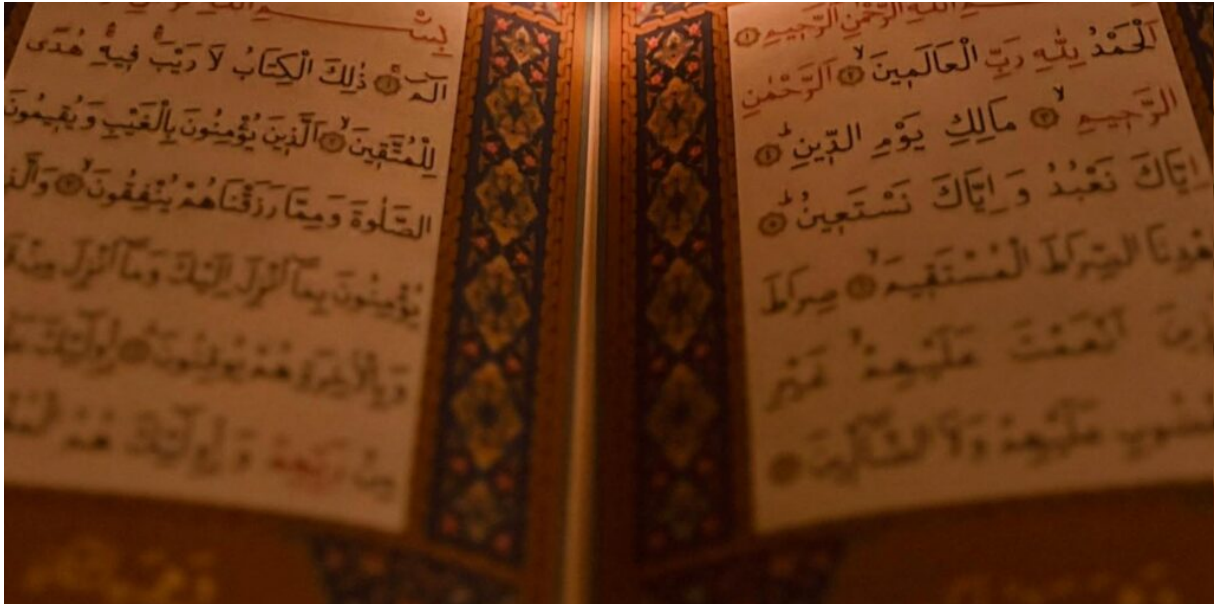 بِسْمِ اللّٰهِ الرَّحْمٰنِ الرَّحِيمِ ﴿١﴾
اَلْحَمْدُ لِلّٰهِ رَبِّ الْعَالَمِينَۙ ﴿٢﴾ اَلرَّحْمٰنِ
الرَّحِيمِۙ ﴿٣﴾ مَالِكِ يَوْمِ الدِّينِۜ ﴿٤﴾
اِيَّاكَ نَعْبُدُ وَاِيَّاكَ نَسْتَعِينُۜ ﴿٥﴾
اِهْدِنَا الصِّرَاطَ الْمُسْتَقِيمَۙ ﴿٦﴾ صِرَاطَ
اَنْعَمْتَ عَلَيْهِمْۙ غَيْرِ
عَلَيْهِمْ وَلَا الضَّالِّينَ ﴿٧﴾
بِسْمِ اللّٰهِ
الٓمٓۚ ﴿١﴾ ذٰلِكَ الْكِتَابُ لَا رَيْبَۚۛ فِيهِۚۛ هُدًى
لِلْمُتَّقِينَۙ ﴿٢﴾ اَلَّذِينَ يُؤْمِنُونَ بِالْغَيْبِ وَيُقِيمُونَ
الصَّلٰوةَ وَمِمَّا رَزَقْنَاهُمْ يُنْفِقُونَۙ ﴿٣﴾
يُؤْمِنُونَ بِمَٓا اُنْزِلَ اِلَيْكَ وَمَٓا اُنْزِلَ مِنْ
وَبِالْاٰخِرَةِ هُمْ يُوقِنُونَۜ ﴿٤﴾ اُو۬لٰٓئِكَ
مِنْ رَبِّهِمْ وَاُو۬لٰٓئِكَ هُمُ